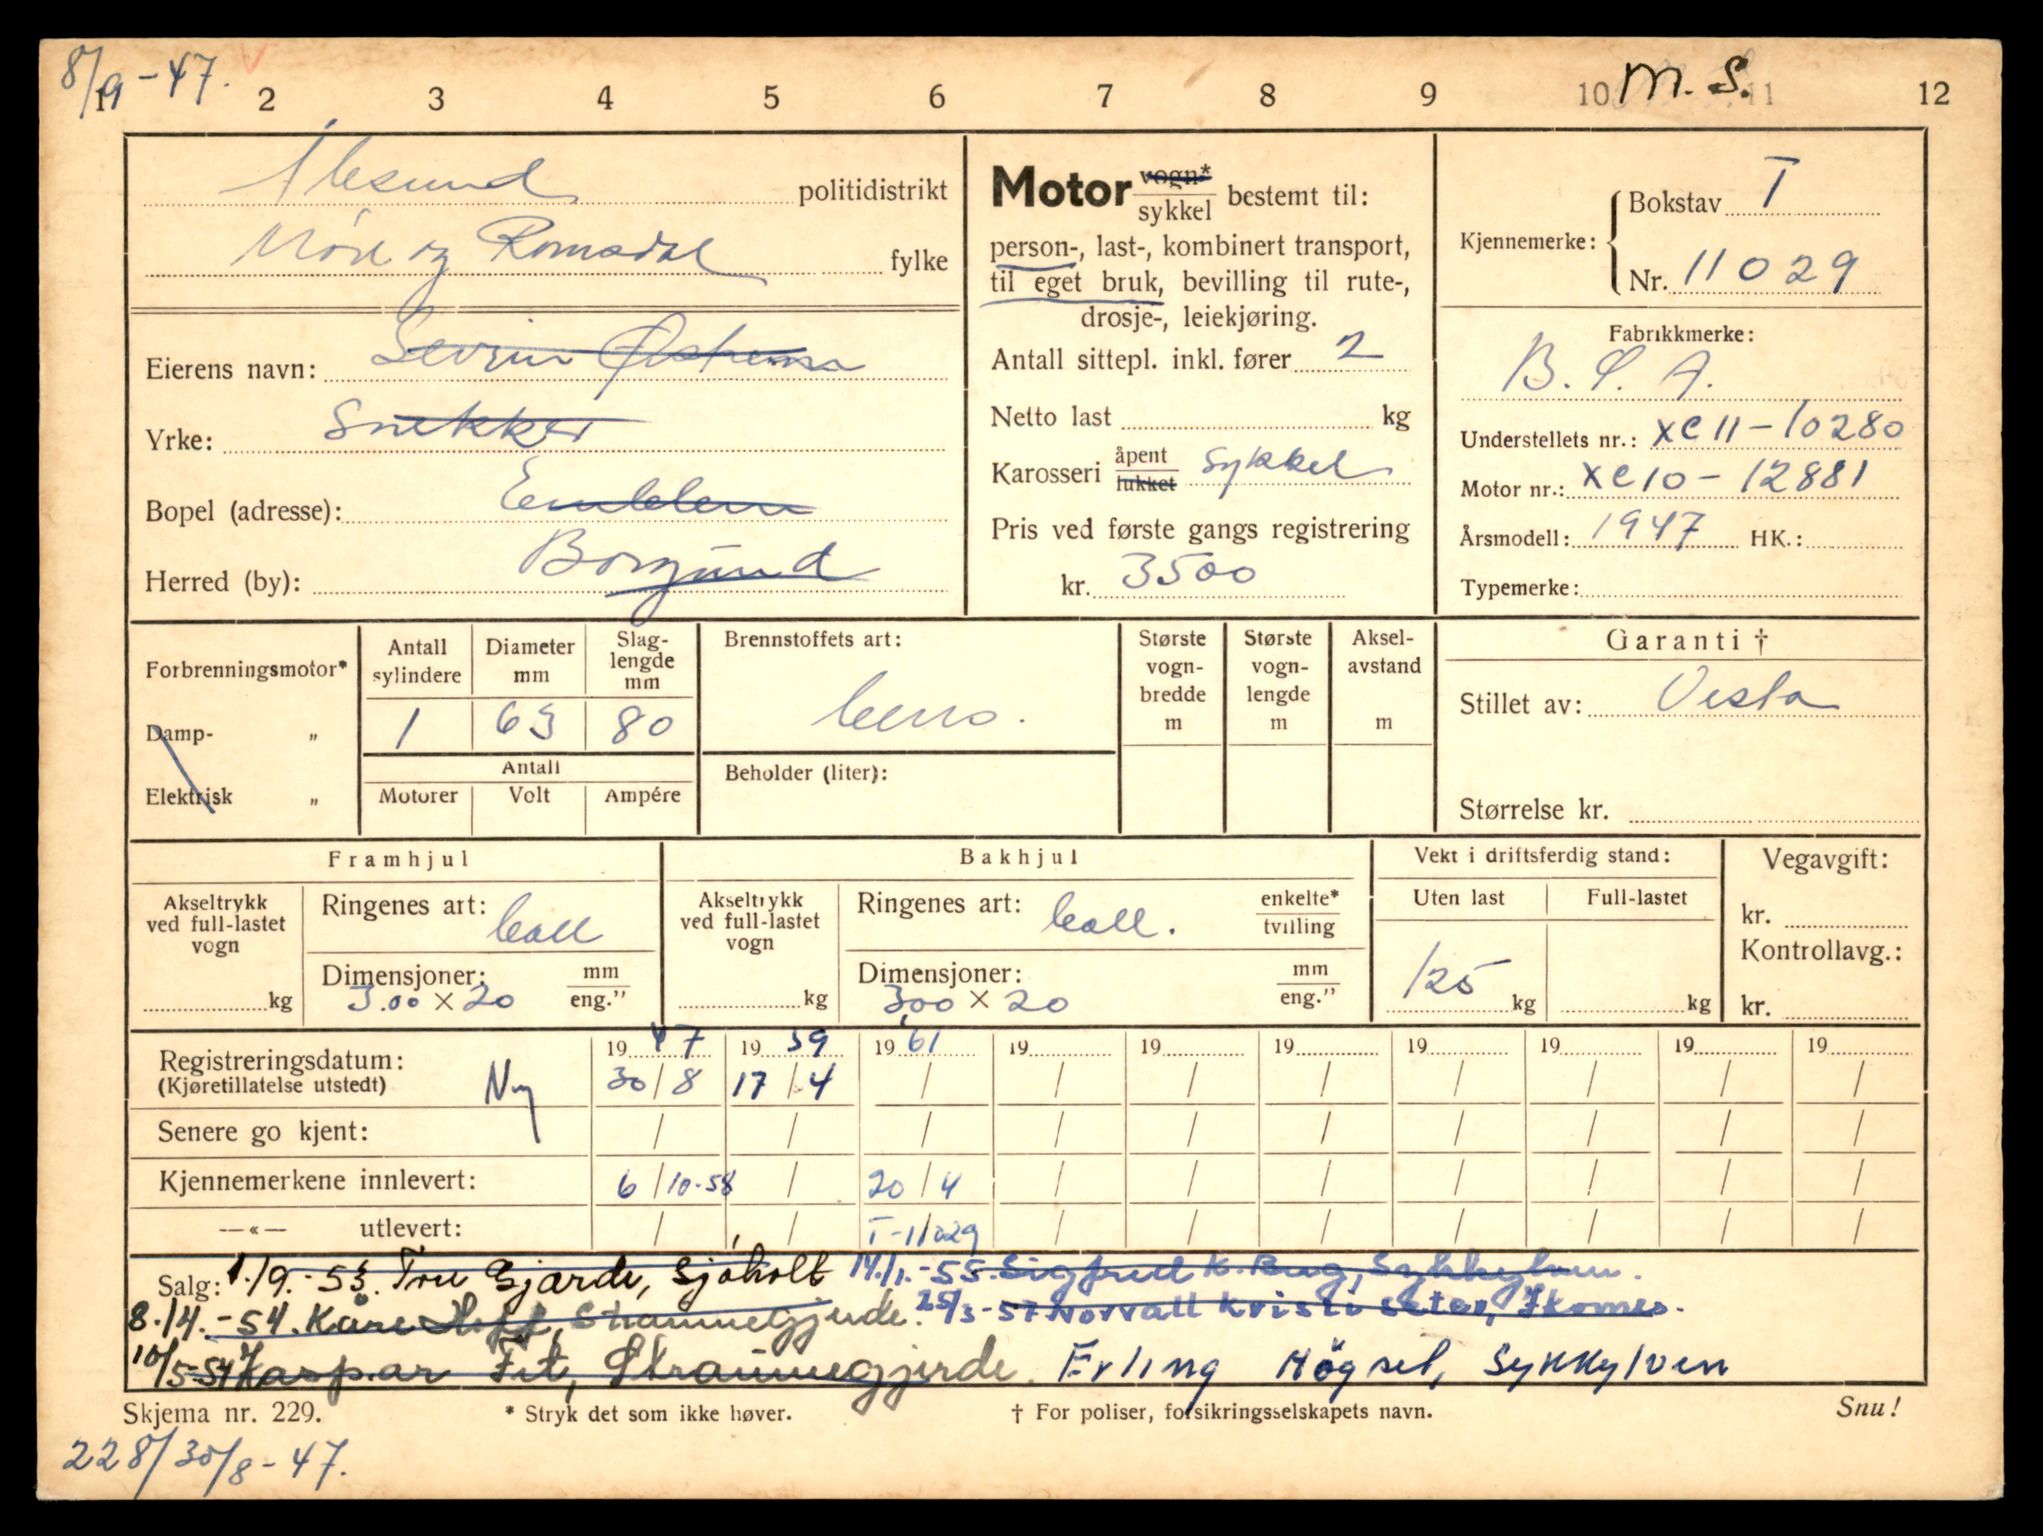 8/9-47. V
1 2 3 4 5 6 7 8 9 10 11 12
M. S.
Ålesund politidistrikt
Møre og Romsdal fylke
Eierens navn: Sevrin
Yrke: Snekker
Bopel (adresse): Emblem
Herred (by): Borgund
Motor vogn* / sykkel bestemt til:
person-, last-, kombinert transport,
til eget bruk, bevilling til rute-,
drosje-, leiekjøring.
Antall sittepl. inkl. fører 2
Netto last kg
Karosseri åpent / lukket sykkel
Pris ved første gangs registrering
kr. 3500
Kjennemerke: Bokstav T
Nr. 11029
Fabrikkmerke:
B. S. A.
Understellets nr.: XC11-10280
Motor nr.: XC10-12881
Årsmodell: 1947 HK.:
Typemerke:
Forbrenningsmotor*
Damp- „
Elektrisk „
Antall sylindere Diameter mm Slag-lengde mm
1 63 80
Antall
Motorer Volt Ampére
Brennstoffets art:
Bens.
Beholder (liter):
Største vogn-bredde m
Største vogn-lengde m
Aksel-avstand m
Garanti †
Stillet av: Vesta
Størrelse kr.
Framhjul
Akseltrykk ved full-lastet vogn
kg
Ringenes art: Ball
Dimensjoner: mm / eng."
3.00 × 20
Bakhjul
Akseltrykk ved full-lastet vogn
kg
Ringenes art: Ball. enkelte* / tvilling
Dimensjoner: mm / eng."
3,00 × 20
Vekt i driftsferdig stand:
Uten last Full-lastet
125 kg kg
Vegavgift:
kr.
Kontrollavg.:
kr.
Registreringsdatum: 1947 1959 1961 19 19 19 19 19 19 19
(Kjøretillatelse utstedt) Ny 30/8 17/4 / / / / / / / /
Senere go kjent: / / / / / / / / / /
Kjennemerkene innlevert: 6/10-58 / 20/4 / / / / / / /
—«— utlevert: / / T-11029 / / / / / / /
Salg: 1./9.-53. Gjærde, Sjøholt 14./1.-55. Sigfred K. Sykkylven.
8./4.-54. Kåre Hoff, Straumegjerde. 25/3-57 Norvall Kristi
10/5-54 Kaspar Fet, Straumegjerde. Erling Høgsel, Sykkylven
Skjema nr. 229. * Stryk det som ikke høver. † For poliser, forsikringsselskapets navn. Snu!
228/30/8-47.